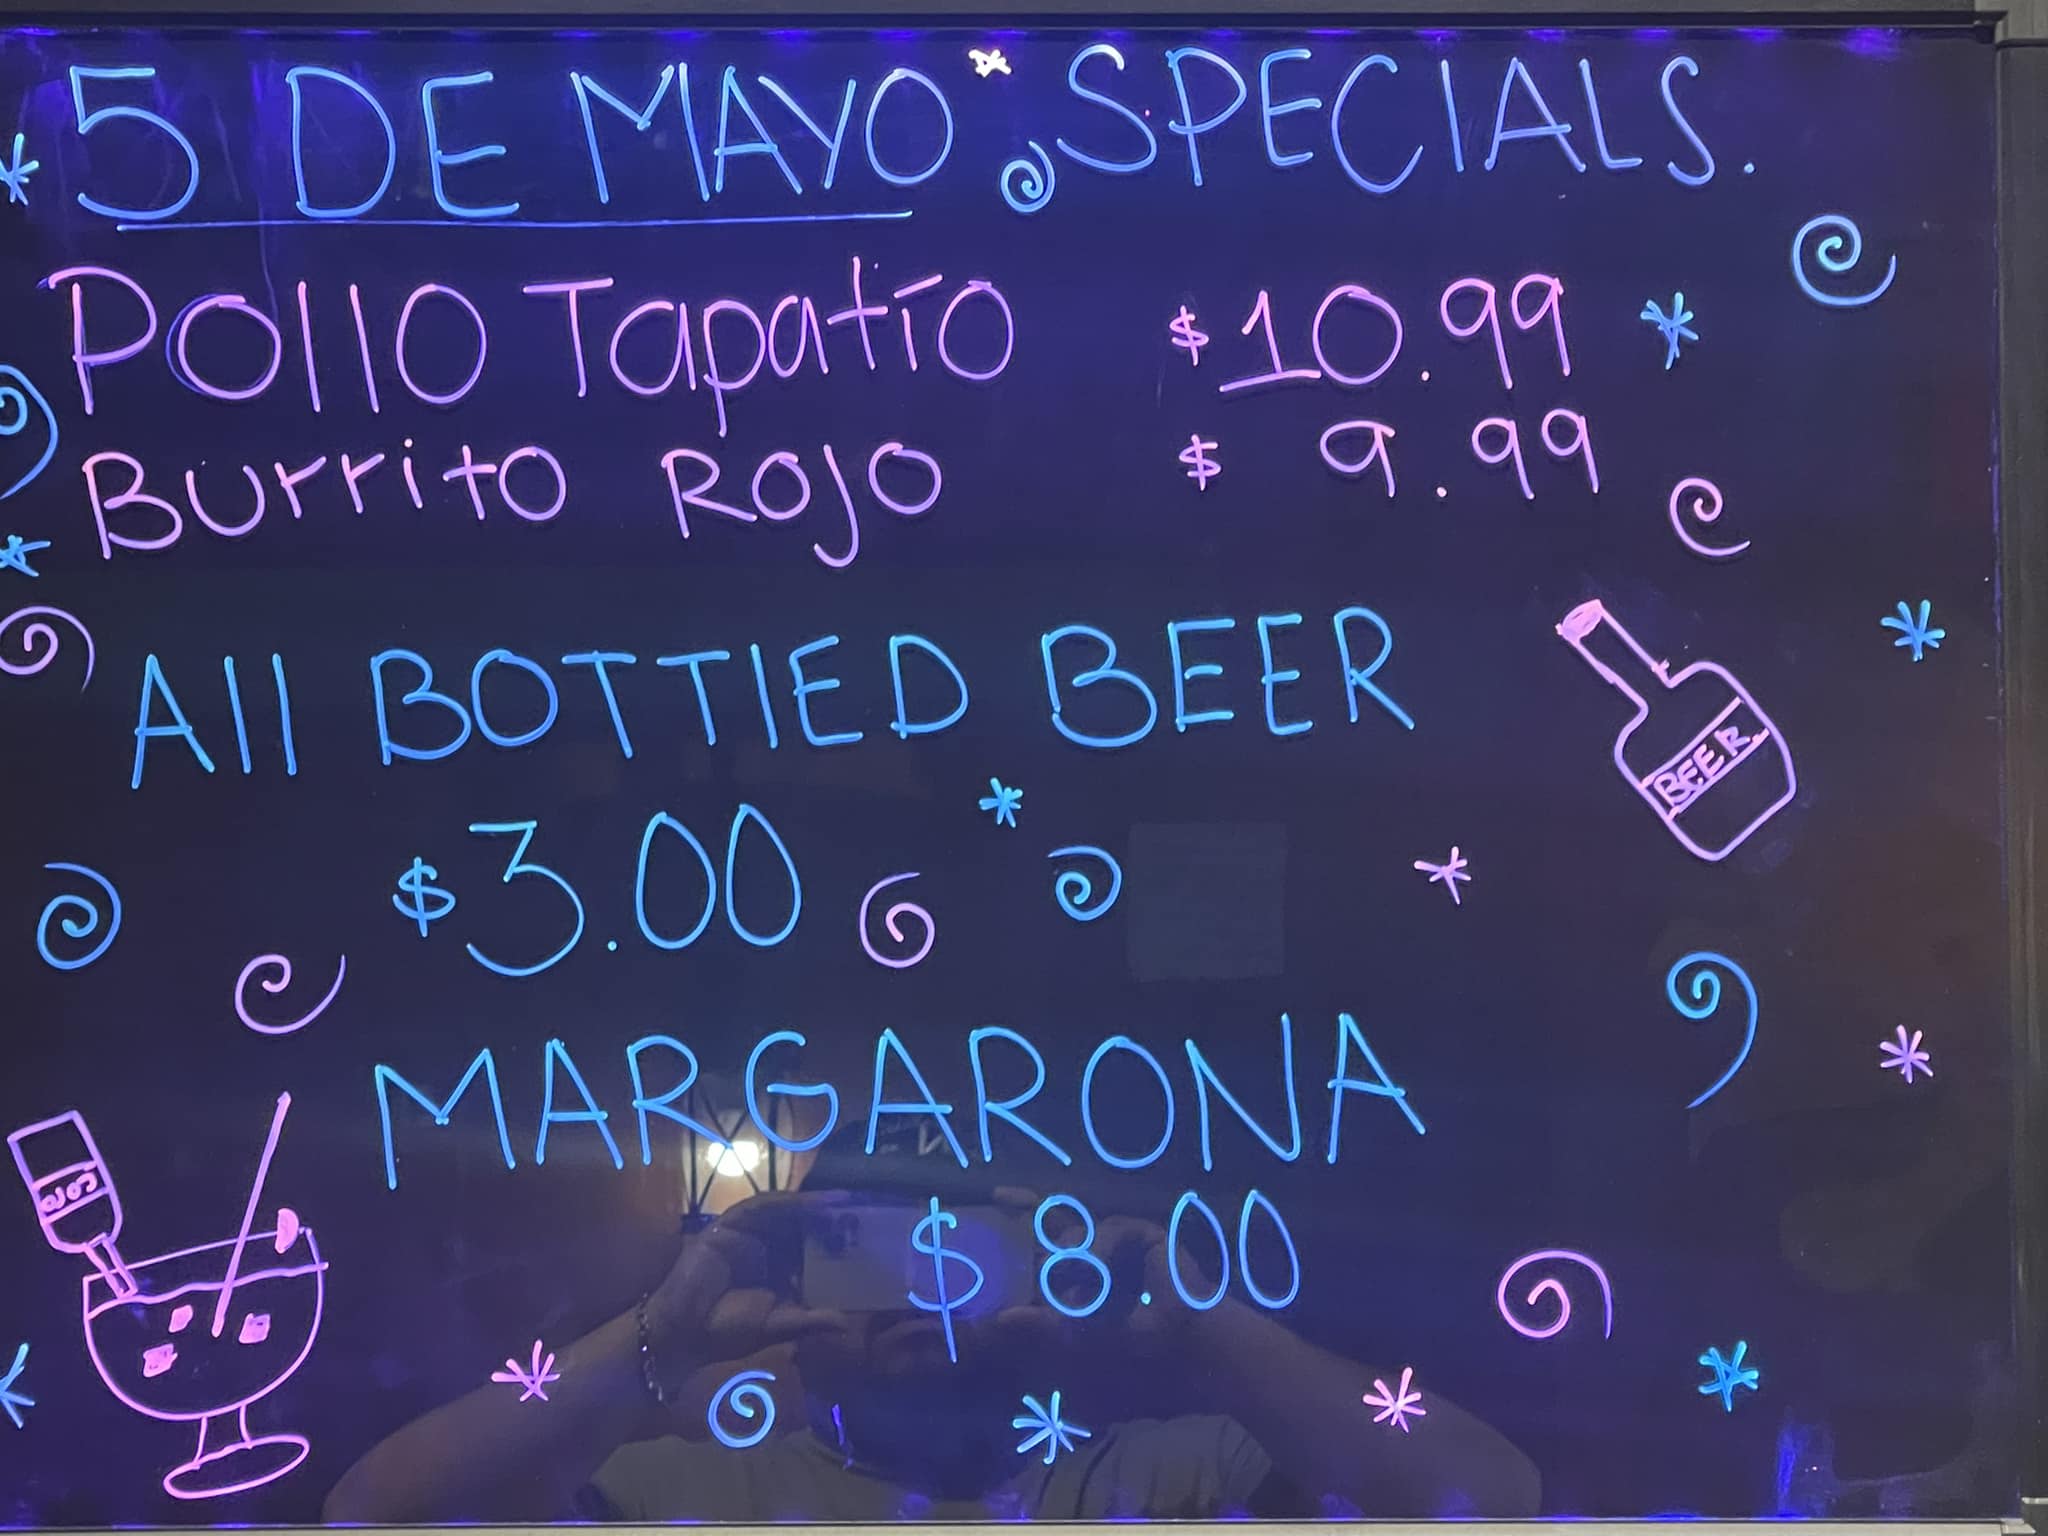 5 DE MAYO SPECIALS.
Pollo Tapatío $10.99
Burrito Rojo $ 9.99
All BOTTlED BEER
$3.00
BEER
MARGARONA
$8.00